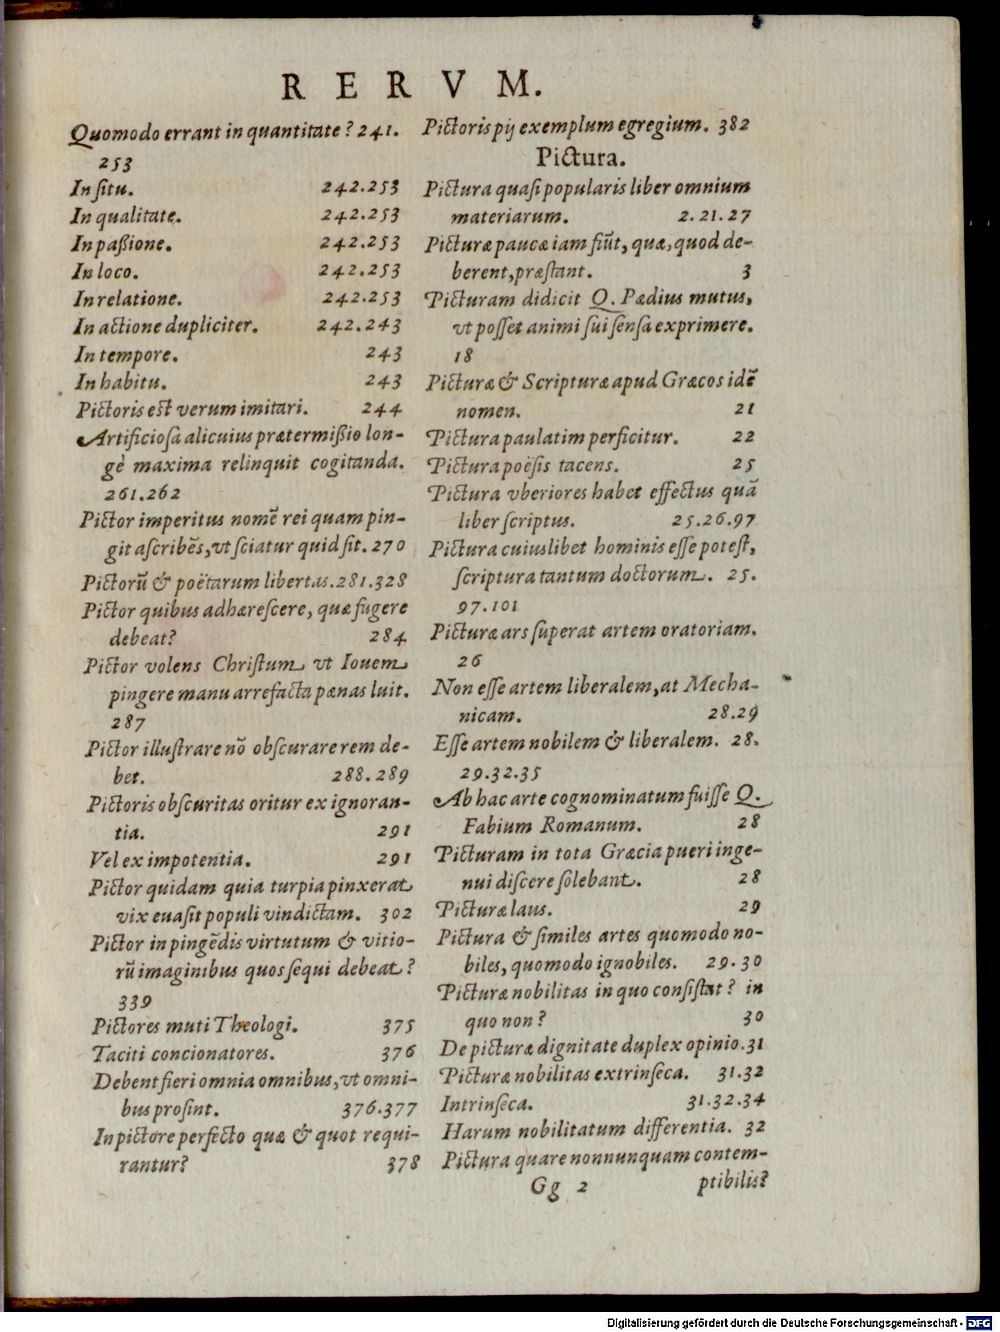 RERVM.
Quomodo errant in quantitate? 241.
253
In ſitu. 242.253
In qualitate. 242.253
In paßione. 242.253
In loco. 242.253
In relatione. 242.253
In actione dupliciter. 242.243
In tempore. 243
In habitu. 243
Pictoris eſt verum imitari. 244
Artificioſa alicuius prætermißio lon-
gè maxima relinquit cogitanda.
261.262
Pictor imperitus nomē rei quam pin-
git aſcribēs, vt ſciatur quid ſit. 270
Pictorū & poëtarum libertas. 281.328
Pictor quibus adhæreſcere, quæ fugere
debeat? 284
Pictor volens Chriſtum vt Iouem
pingere manu arrefacta pœnas luit.
287
Pictor illuſtrare nō obſcurare rem de-
bet. 288.289
Pictoris obſcuritas oritur ex ignoran-
tia. 291
Vel ex impotentia. 291
Pictor quidam quia turpia pinxerat
vix euaſit populi vindictam. 302
Pictor in pingēdis virtutum & vitio-
rū imaginibus quos ſequi debeat?
339
Pictores muti Theologi. 375
Taciti concionatores. 376
Debent fieri omnia omnibus, vt omni-
bus proſint. 376.377
In pictore perfecto quæ & quot requi-
rantur? 378
Pictoris pij exemplum egregium. 382
Pictura.
Pictura quaſi popularis liber omnium
materiarum. 2.21.27
Picturæ paucæ iam fiūt, quæ, quod de-
berent, præſtant. 3
Picturam didicit Q. Pædius mutus,
vt poſſet animi ſui ſenſa exprimere.
18
Picturæ & Scripturæ apud Græcos idē
nomen. 21
Pictura paulatim perficitur. 22
Pictura poëſis tacens. 25
Pictura vberiores habet effectus quā
liber ſcriptus. 25.26.97
Pictura cuiuslibet hominis eſſe poteſt,
ſcriptura tantum doctorum. 25.
97.101
Picturæ ars ſuperat artem oratoriam.
26
Non eſſe artem liberalem, at Mecha-
nicam. 28.29
Eſſe artem nobilem & liberalem. 28.
29.32.35
Ab hac arte cognominatum fuiſſe Q.
Fabium Romanum. 28
Picturam in tota Græcia pueri inge-
nui diſcere ſolebant. 28
Picturæ laus. 29
Pictura & ſimiles artes quomodo no-
biles, quomodo ignobiles. 29.30
Picturæ nobilitas in quo conſiſtat? in
quo non? 30
De picturæ dignitate duplex opinio. 31
Picturæ nobilitas extrinſeca. 31.32
Intrinſeca. 31.32.34
Harum nobilitatum differentia. 32
Pictura quare nonnunquam contem-
Gg 2 ptibilis?
Digitalisierung gefördert durch die Deutsche Forschungsgemeinschaft - DFG